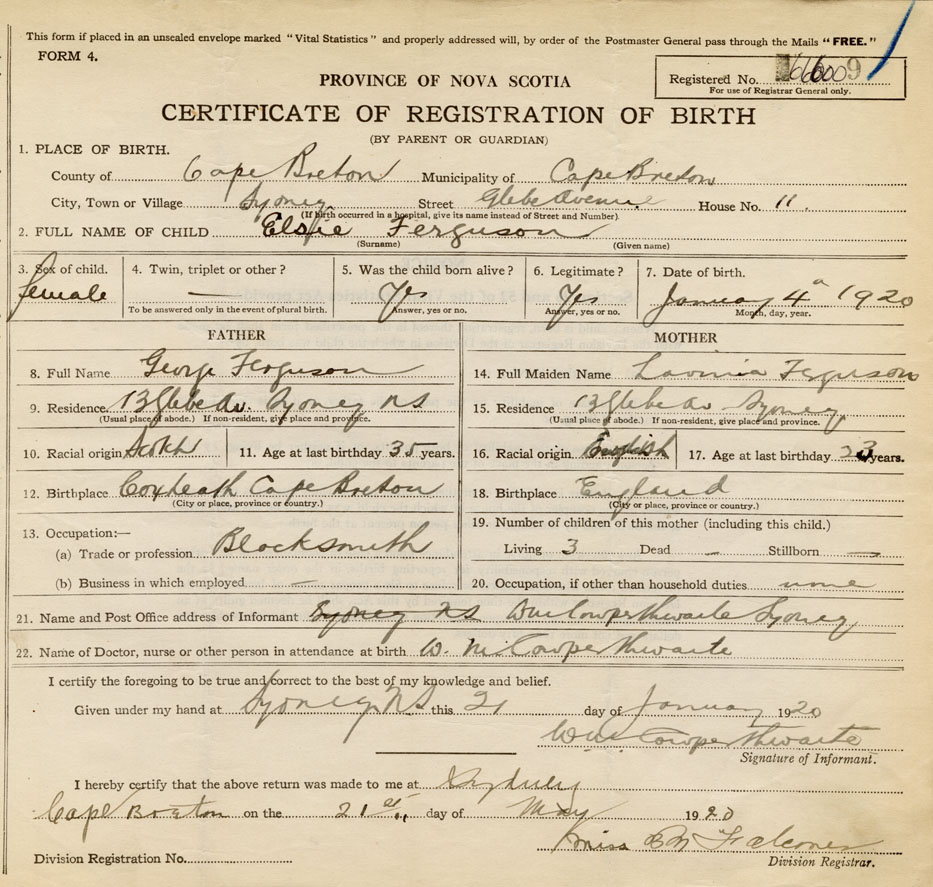 This form if placed in an unsealed envelope marked "Vital Statistics" and properly addressed will, by order of the Postmaster General pass through the Mails "FREE."
FORM 4.
Registered No. 66009
For use of Registrar General only.
PROVINCE OF NOVA SCOTIA
CERTIFICATE OF REGISTRATION OF BIRTH
(BY PARENT OR GUARDIAN)
1. PLACE OF BIRTH.
County of Cape Breton Municipality of Cape Breton
City, Town or Village Sydney Street Glebe Avenue House No. 11.
(If birth occurred in a hospital, give its name instead of Street and Number).
2. FULL NAME OF CHILD Elsie Ferguson
(Surname) (Given name)
3. Sex of child. 4. Twin, triplet or other? 5. Was the child born alive? 6. Legitimate? 7. Date of birth.
female — Yes Yes January 4 1920
To be answered only in the event of plural birth. Answer, yes or no. Answer, yes or no. Month, day, year.
FATHER MOTHER
8. Full Name George Ferguson 14. Full Maiden Name Lavinia Ferguson
9. Residence. 13 Glebe Av. Sydney NS 15. Residence 13 Glebe Av Sydney
(Usual place of abode.) If non-resident, give place and province. (Usual place of abode.) If non-resident, give place and province.
10. Racial origin Scotch 11. Age at last birthday 35 years. 16. Racial origin English 17. Age at last birthday years.
12. Birthplace Coxheath Cape Breton 18. Birthplace England
(City or place, province or country.) (City or place, province or country.)
13. Occupation:— 19. Number of children of this mother (including this child.)
(a) Trade or profession Blacksmith Living 3 Dead — Stillborn —
(b) Business in which employed — 20. Occupation, if other than household duties none
21. Name and Post Office address of Informant Sydney NS Wm Cowperthwaite Sydney
22. Name of Doctor, nurse or other person in attendance at birth W. M Cowperthwaite
I certify the foregoing to be true and correct to the best of my knowledge and belief.
Given under my hand at Sydney NS this 21 day of January 1920
Wm Cowperthwaite
Signature of Informant.
I hereby certify that the above return was made to me at Sydney
Cape Breton on the 21st day of May 1920
Miss Falconer
Division Registration No. Division Registrar.